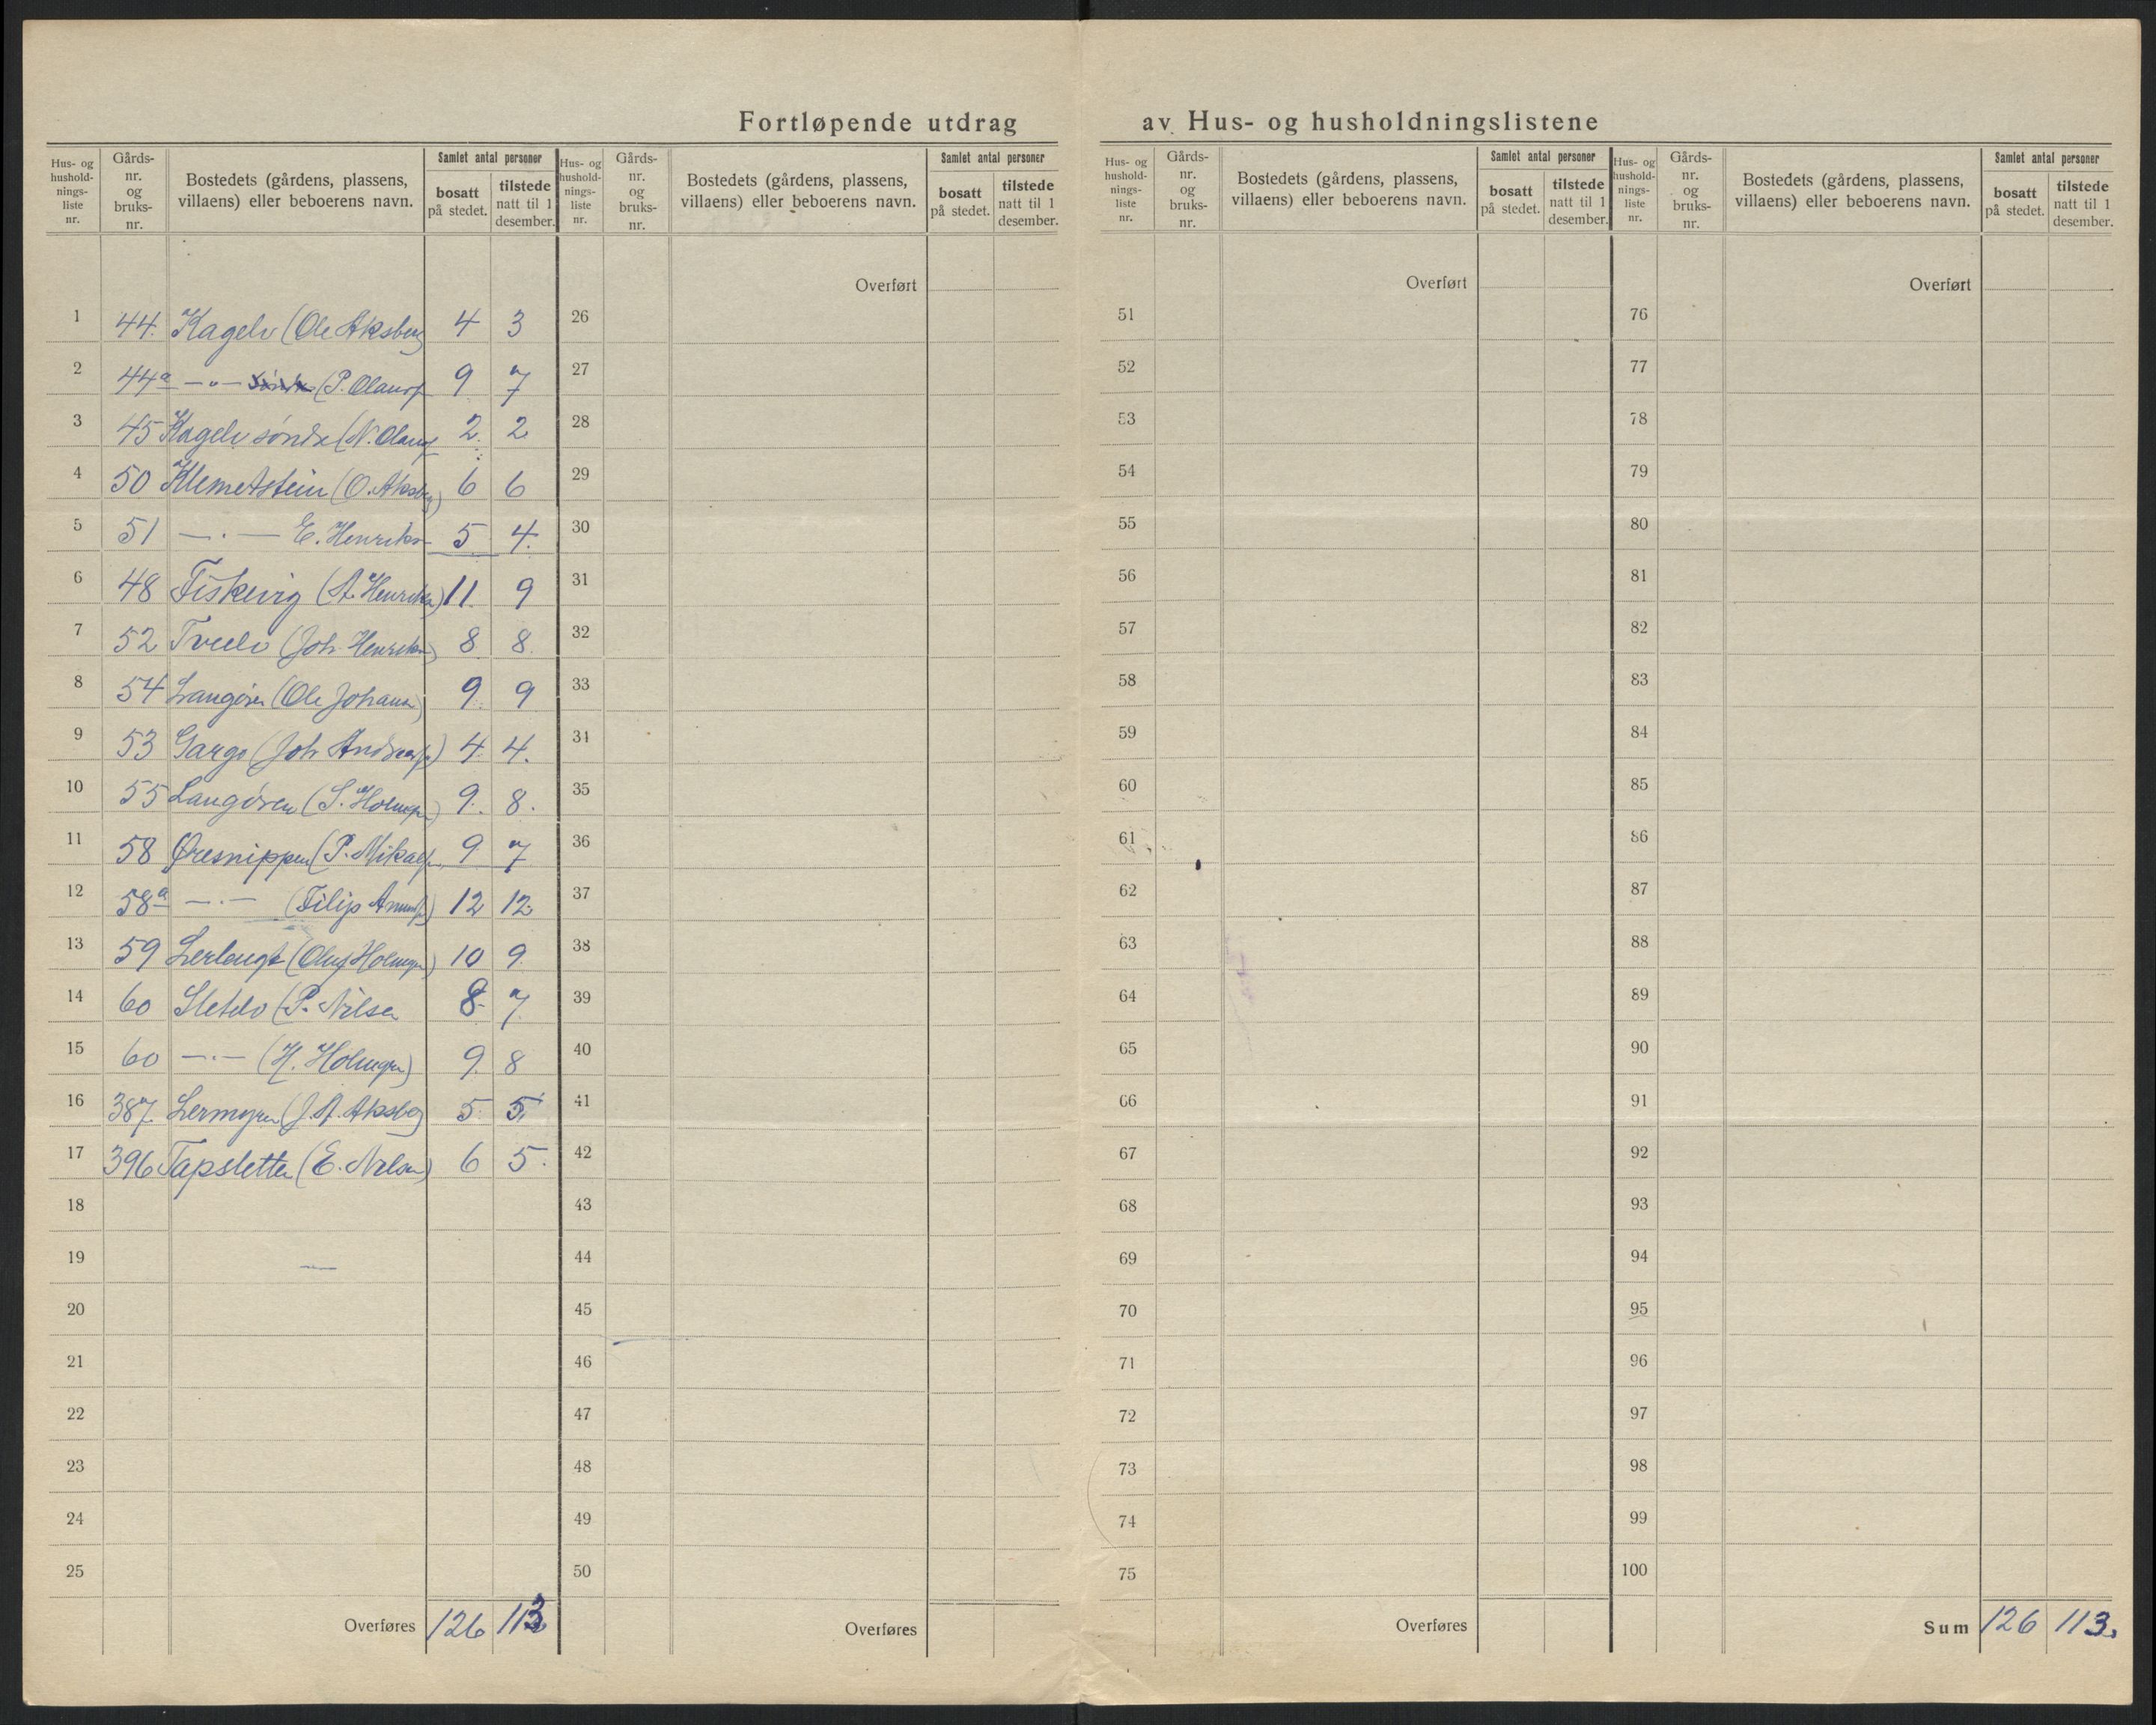 Fortløpende utdrag av Hus- og husholdningslistene
Hus- og hushold-nings-liste nr.
Gårds-nr. og bruks-nr.
Bostedets (gårdens, plassens, villaens) eller beboerens navn.
Samlet antal personer
bosatt på stedet.
tilstede natt til 1 desember.
Hus- og hushold-nings-liste nr.
Gårds-nr. og bruks-nr.
Bostedets (gårdens, plassens, villaens) eller beboerens navn.
Samlet antal personer
bosatt på stedet.
tilstede natt til 1 desember.
Hus- og hushold-nings-liste nr.
Gårds-nr. og bruks-nr.
Bostedets (gårdens, plassens, villaens) eller beboerens navn.
Samlet antal personer
bosatt på stedet.
tilstede natt til 1 desember.
Hus- og hushold-nings-liste nr.
Gårds-nr. og bruks-nr.
Bostedets (gårdens, plassens, villaens) eller beboerens navn.
Samlet antal personer
bosatt på stedet.
tilstede natt til 1 desember.
Overført Overført Overført
1 44. Kagelv (Ole Aksberg 4 3 26 51 76
2 44a —"— (P. Olausf 9 7 27 52 77
3 45 Kagelv søndre (N. Olausf 2. 2 28 53 78
4 50 Klemetstein (O. Aksberg) 6 6 29 54 79
5 51 —·— E. Henriks 5 4. 30 55 80
6 48 Fiskevig (A. Henriks) 11. 9 31 56 81
7 52 Tverelv (Joh. Henriks) 8 8. 32 57 82
8 54 Langøren (Ole Johans) 9. 9 33 58 83
9 53 Gargo (Joh Andreasf) 4. 4. 34 59 84
10 55 Langøren (S. Holmgr) 9. 8. 35 60 85
11 58 Øresnippen (P. Mikals 9 7 36 61 86
12 58a —·— (Filip 12 12. 37 62 87
13 59 (Oluf Holmgr) 10 9. 38 63 88
14 60 Sletelv (P. Nilsen 8. 7. 39 64 89
15 60 —·— (H. Holmgren) 9. 8 40 65 90
16 387. Lermyren (J. A. Aksberg 5. 5 41 66 91
17 396 Tapsletten (E. Nilsen) 6 5. 42 67 92
18 43 68 93
19 44 69 94
20 45 70 95
21 46 71 96
22 47 72 97
23 48 73 98
24 49 74 99
25 50 75 100
Overføres 126 113 Overføres Overføres Sum 126 113.